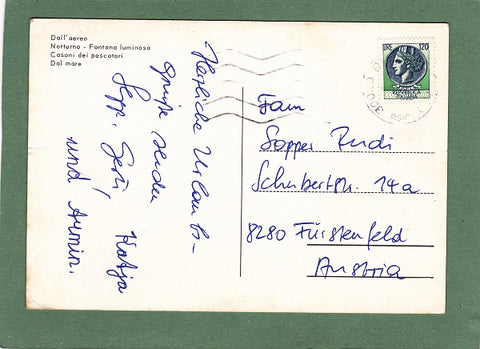 Dall'aereo
Notturno - Fontana luminosa
Casoni dei pescatori
Dal mare
LIRE 120
Herzliche Urlaubs-
grüße senden
Sepp, Gerti,
Katja
und Armin.
Fam
Sopper Rudi
Schubertstr. 14a
8280 Fürstenfeld
Austria